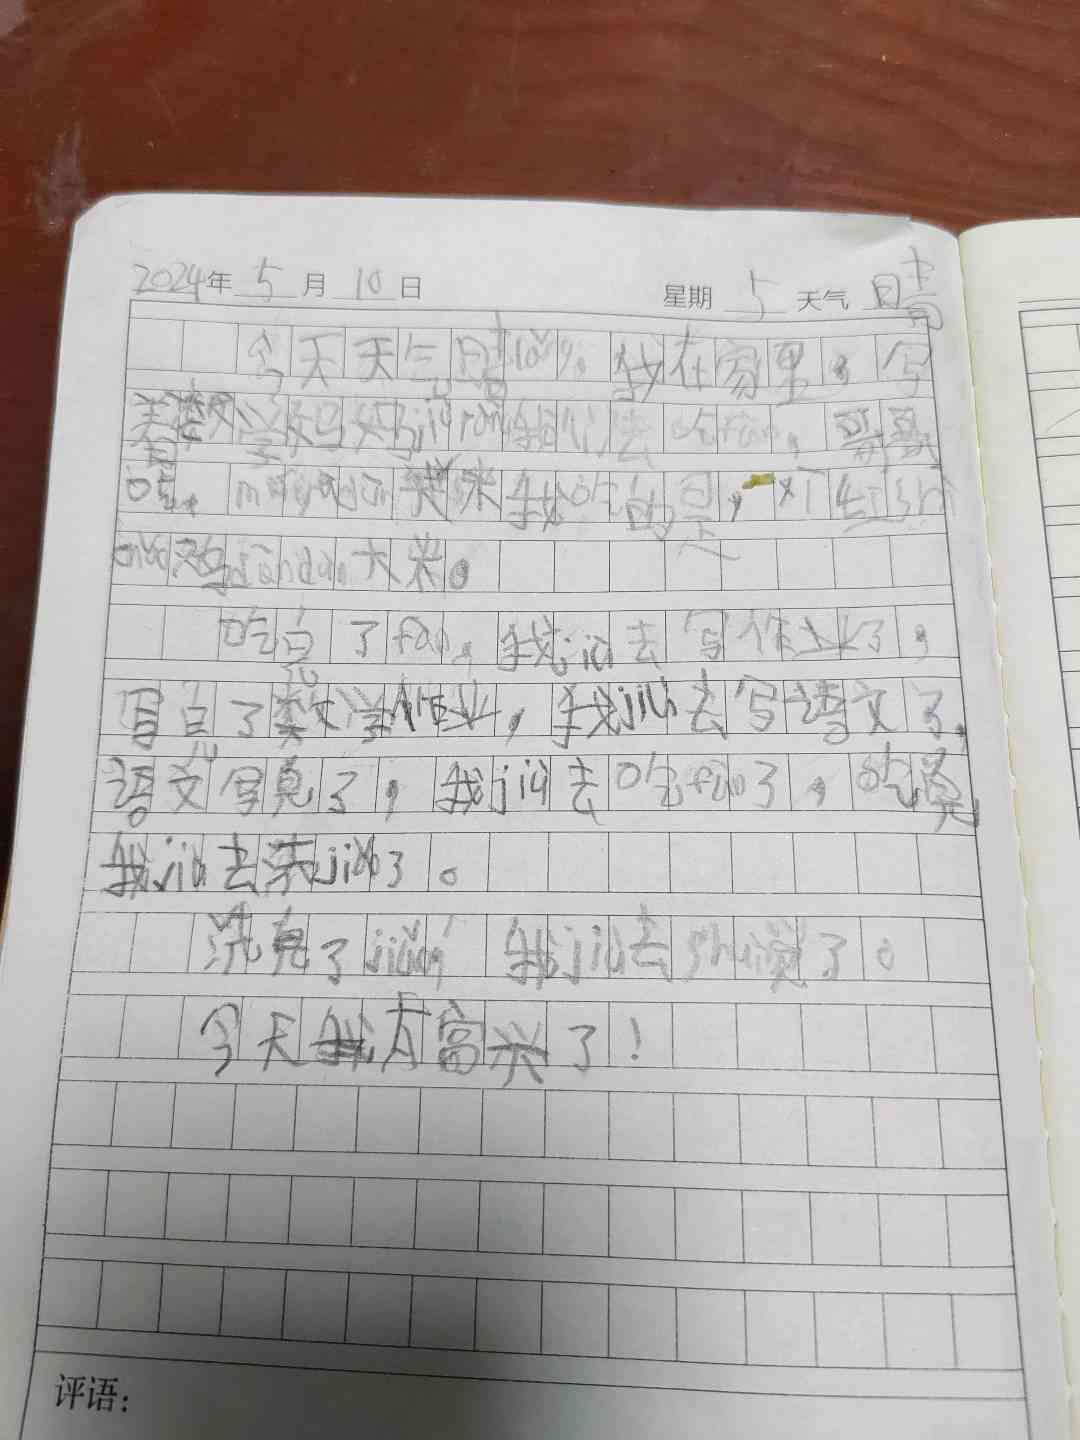 2024年 5 月 10 日 星期 5 天气 晴
今天天气晴lǎng。我在家里,写
数学妈妈jiù ràng我们去吃fàn,哥哥
吃 大米我吃的是,西红shì
大米。
吃完了fàn,我jiù去写作业了,
写完了数学作业,我jiù去写语文了,
语文写完了,我jiù去吃fàn了,吃完
我jiù去洗jiǎo了。
洗完了jiǎo,我jiù去shuì觉了。
今天我太高兴了!
评语: